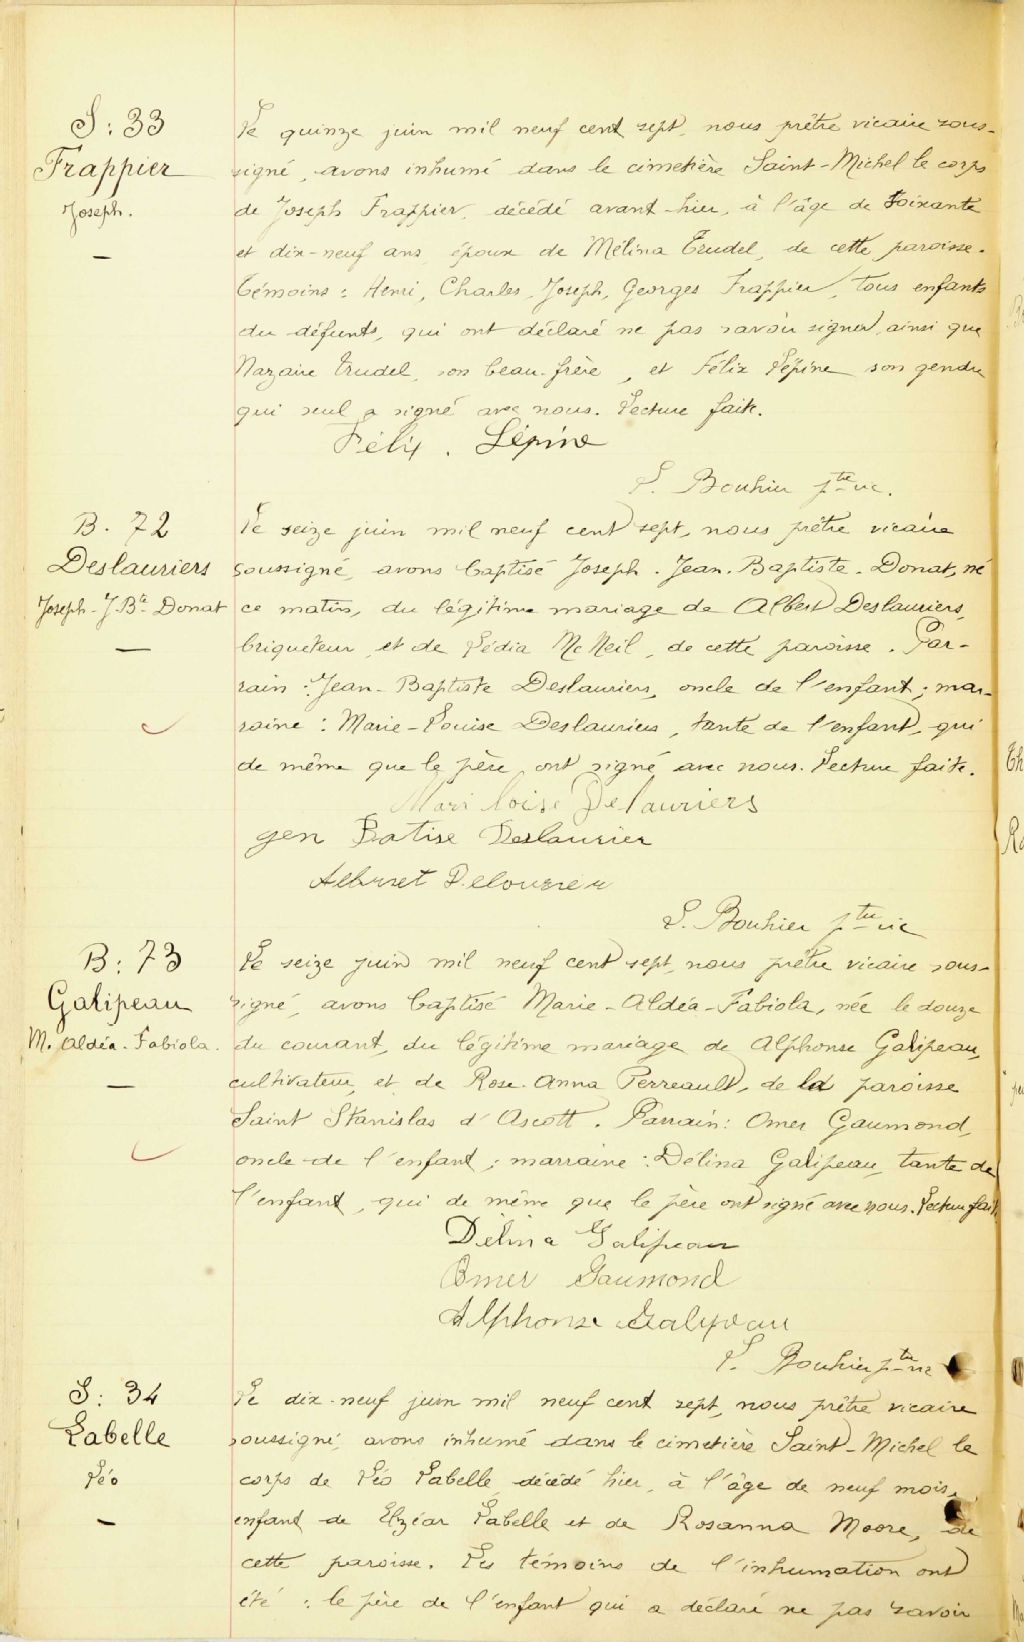 S: 33
Frappier
Joseph.
Le quinze juin mil neuf cent sept, nous prêtre vicaire sous-
signé, avons inhumé dans le cimetière Saint-Michel le corps
de Joseph Frappier, décédé avant-hier, à l'âge de soixante
et dix-neuf ans, époux de Mélina Trudel, de cette paroisse.
Témoins: Henri, Charles, Joseph, Georges Frappier, tous enfants
du défunts, qui ont déclaré ne pas savoir signer, ainsi que
Nazaire Trudel, son beau-frère, et Félix Lépine son gendre
qui seul a signé avec nous. Lecture faite.
Félix. Lépine
L. Bouhier ptre vic.
B. 72
Deslauriers
Joseph-J.Bte Donat
Le seize juin mil neuf cent sept, nous prêtre vicaire
soussigné, avons baptisé Joseph. Jean. Baptiste. Donat, né
ce matin, du légitime mariage de Albert Deslauriers,
briqueteur, et de Lédia McNeil, de cette paroisse. Par-
rain: Jean-Baptiste Deslauriers, oncle de l'enfant; mar-
raine: Marie-Louise Deslauriers, tante de l'enfant, qui
de même que le père ont signé avec nous. Lecture faite.
Mari loise Delauriers
gen Batise Deslaurier
L. Bouhier ptre vic
B: 73
Galipeau
M. Aldéa. Fabiola.
Le seize juin mil neuf cent sept, nous prêtre vicaire sous-
signé, avons baptisé Marie-Aldéa-Fabiola, née le douze
du courant, du légitime mariage de Alphonse Galipeau,
cultivateur, et de Rose-Anna Perreault, de la paroisse
Saint Stanislas d'Ascott. Parrain: Omer Gaumond,
oncle de l'enfant; marraine: Délina Galipeau, tante de
l'enfant, qui de même que le père ont signé avec nous. Lecture faite.
Délina Galipeau
Omer Gaumond
Alphonse Galipeau
L. Bouhier ptre vic
S: 34
Labelle
Léo
Le dix-neuf juin mil neuf cent sept, nous prêtre vicaire
soussigné, avons inhumé dans le cimetière Saint-Michel le
corps de Léo Labelle, décédé hier, à l'âge de neuf mois,
enfant de Elzéar Labelle et de Rosanna Moore, de
cette paroisse. Les témoins de l'inhumation ont
été: le père de l'enfant qui a déclaré ne pas savoir